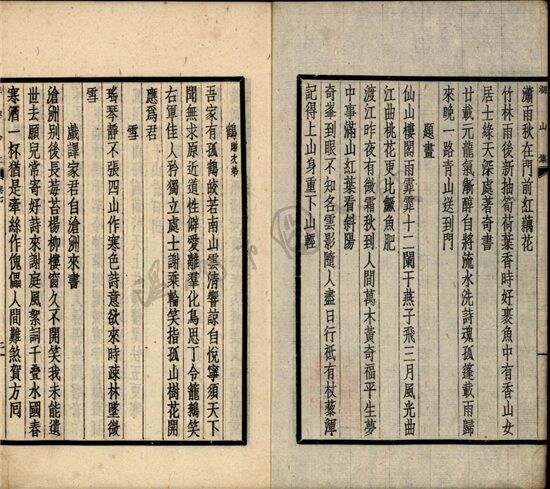 瀟雨秋在門前紅藕花
竹林雨後新抽筍荷葉香時好裹魚中有香山女
居士綠天深處著奇書
廿載元龍氣漸醇自將流水洗詩魂孤蓬載雨歸
來晚一路青山送到門
題畫
仙山樓閣雨霏霏十二闌干燕子飛三月風光曲
江曲桃花更比鱖魚肥
渡江昨夜有微霜秋到人間萬木黃奇福平生夢
中事滿山紅葉看斜陽
奇峯到眼不知名雲影隨人盡日行祇有杖藜渾
記得上山身重下山輕
鶴
吾家有孤鶴皎若南山雲清聲諒自悅寧須天下
聞無求原近道性僻愛離羣化鳥思丁令籠鵝笑
右軍佳人矜獨立處士謝乘輪笑指孤山樹花開
應爲君
雪
瑤琴靜不張四山作寒色詩意欲來時疎林墜微
雪
戲譯家君自滄洲來書
滄洲别後長莓苔楊柳樓窗久不開笑我未能遺
世去願兒常寄好詩來謝庭風絮詞千疊水國春
寒酒一杯猶是牽絲作傀儡人間難煞賀方囘